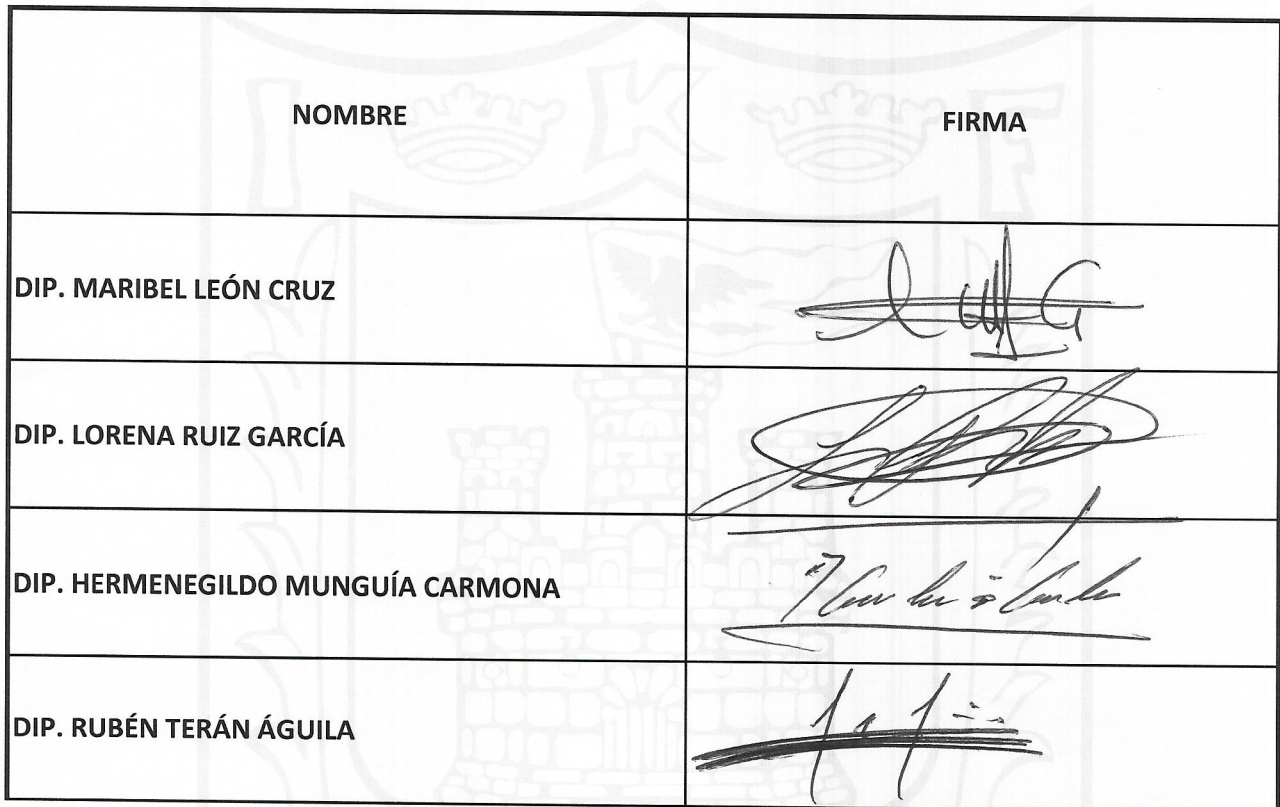 I K F
NOMBRE FIRMA
DIP. MARIBEL LEÓN CRUZ
DIP. LORENA RUIZ GARCÍA
DIP. HERMENEGILDO MUNGUÍA CARMONA
DIP. RUBÉN TERÁN ÁGUILA